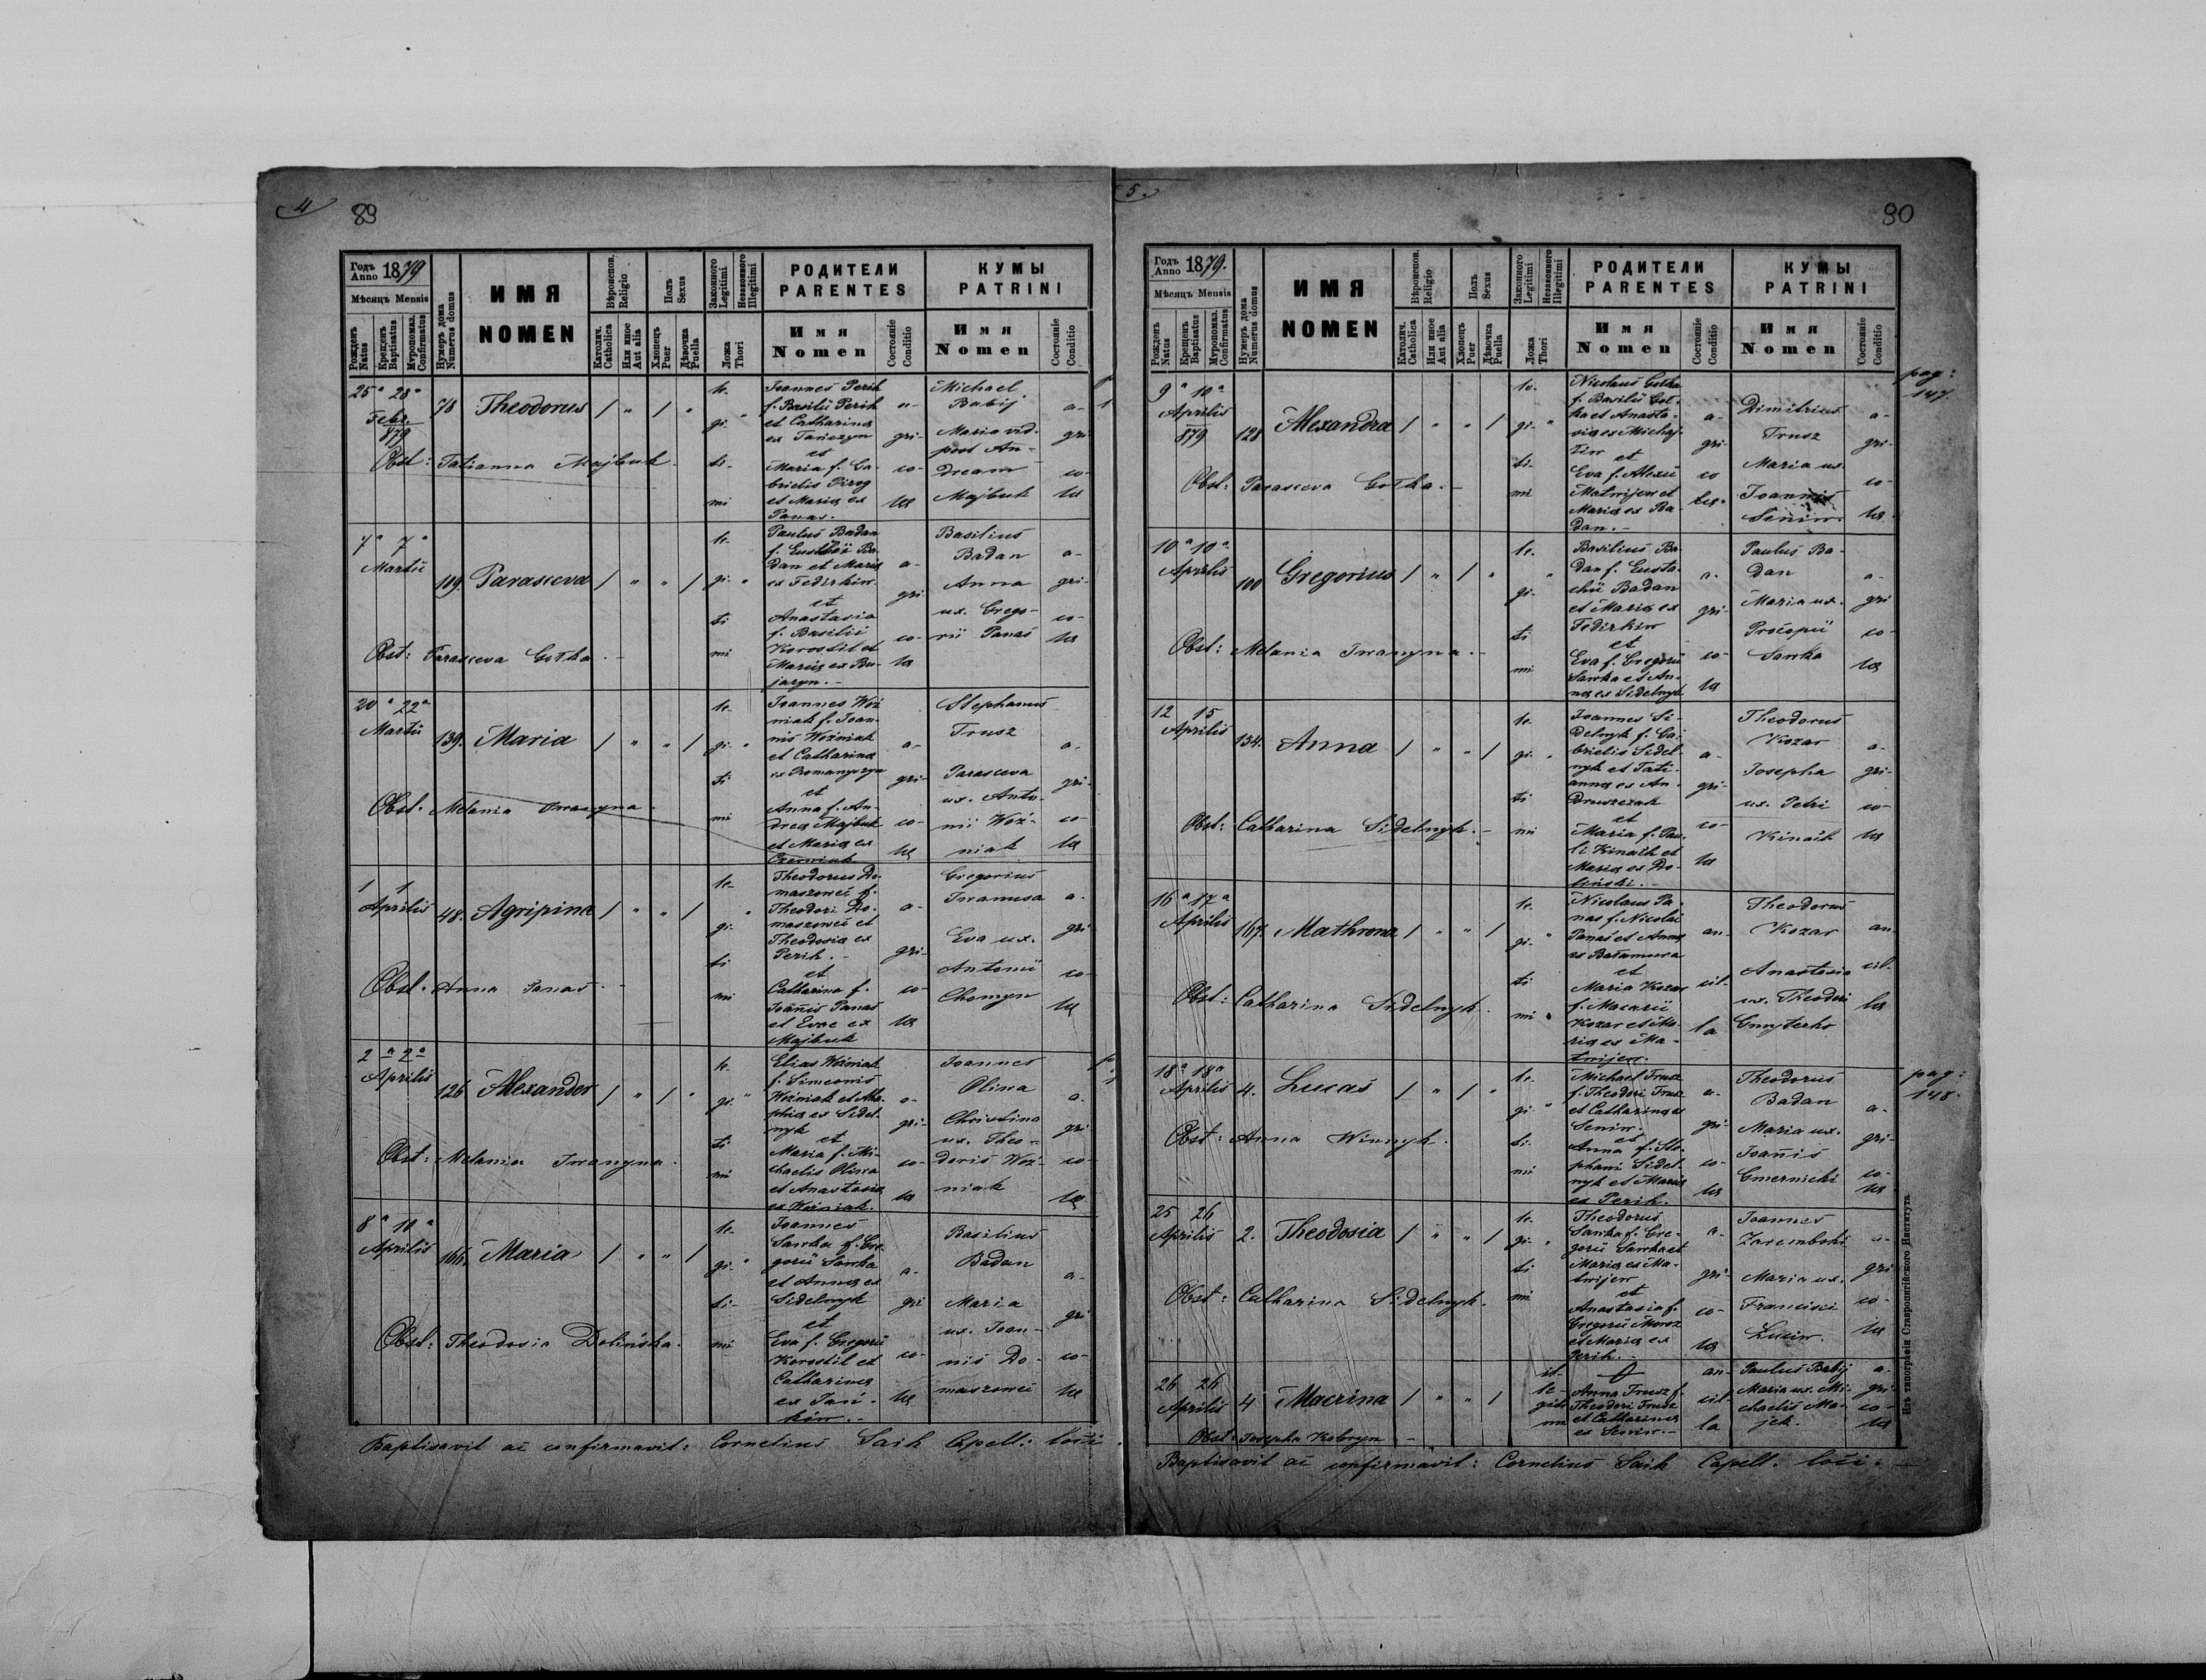 4
89
Годъ
Anno 1879
Мѣсяцъ Mensis
Рожденъ
Natus
Крещенъ
Baptisatus
Мѵропомаз.
Confirmatus
Нумеръ дома
Numerus domus
ИМЯ
NOMEN
Вѣроиспов.
Religio
Католич.
Catholica
Или иное
Aut alia
Полъ
Sexus
Хлопецъ
Puer
Дѣвочка
Puella
Законного
Legitimi
Незаконного
Illegitimi
Ложа
Thori
РОДИТЕЛИ
PARENTES
Имя
Nomen
Состояніе
Conditio
КУМЫ
PATRINI
Имя
Nomen
Состояніе
Conditio
25a 28a
Febr.
879
78 Theodorus / " / "
le-
gi-
ti-
mi
Joannes Perih
f. Basilii Perih
et Catharina
ex Tańczyn
et
Maria f. Ga-
brielis Pirog
et Maria ex
Panas.
a-
gri-
co-
la
Michael
Babij
Maria vid.
post An-
dream
Majbuk
a-
gri-
co-
la
Obst: Tatianna Majbuk.
7a 7a
Martii
109. Parasceva / " " /
le-
gi-
ti
mi
Paulus Badan
f. Eustachii Ba-
dan et Maria
ex Fedirkiw
et
Anastasia
f. Basilii
Korostil et
Maria ex Bu-
jaryn.-
a-
gri-
co-
la
Basilius
Badan
Anna
ux. Grego-
rii Panas
a-
gri-
co-
la
Obst: Parasceva Gotha.-
20a 22a
Martii
139. Maria / " " /
le-
gi-
ti
mi
Joannes Woź
niak f. Joan-
nis Woźniak
et Catharina
ex Romanyszyn
et
Anna f. An-
drea Majbuk
et Maria ex
Czerniak
a-
gri-
co-
la
Stephanus
Trusz
Parasceva
ux. Anto-
nii Woź-
niak
a-
gri-
co-
la
Obst. Melania Iwanyna.
1 1
Aprilis
48. Agripina / " " /
le-
gi-
ti
mi
Theodorus Do-
maszowci f.
Theodori Do-
maszowci et
Theodosia ex
Perih.-
et
Catharina f.
Joannis Panas
et Evae ex
Majbuk
a-
gri-
co-
la
Gregorius
Iwanusa
Eva ux.
Antonii
Chomyn
a-
gri-
co-
la
Obst. Anna Panas.-
2a 2a
Aprilis
126 Alexander / " / "
le-
gi-
ti
mi
Elias Woźniak
f. Simeonis
Woźniak et Aha-
phia ex Sidel-
nyk
et
Maria f. Mi-
chaelis Olina
et Anastasia
ex Woźniak.
a-
gri-
co-
la
Joannes
Olina
Christina
ux. Theo-
doris Woź-
niak
a-
gri-
co-
la
Obst: Melania Iwanyna.
8a 10a
Aprilis
166. Maria / " " /
le-
gi-
ti-
mi
Joannes
Sawka f. Gre-
gorii Sawka
et Anna ex
Sidelnyk
et
Eva f. Gregorii
Korostil et
Catharina
ex Jań-
kiw.-
a-
gri
co-
la
Basilius
Badan
Maria
ux. Joan-
nis Do-
maszowci
a-
gri
co-
la
Obst: Theodosia Dolińska.
Baptisavit ac confirmavit: Cornelius Saik Capell. loci.
5.
90
Годъ
Anno 1879.
Мѣсяцъ Mensis
Рожденъ
Natus
Крещенъ
Baptisatus
Мѵропомаз.
Confirmatus
Нумеръ дома
Numerus domus
ИМЯ
NOMEN
Вѣроиспов.
Religio
Католич.
Catholica
Или иное
Aut alia
Полъ
Sexus
Хлопецъ
Puer
Дѣвочка
Puella
Законного
Legitimi
Незаконного
Illegitimi
Ложа
Thori
РОДИТЕЛИ
PARENTES
Имя
Nomen
Состояніе
Conditio
КУМЫ
PATRINI
Имя
Nomen
Состояніе
Conditio
pag:
147
9a 10a
Aprilis
879
128 Alexandra / " " /
le-
gi-
ti-
mi
Nicolaus Gotha
f. Basilii Got-
ha et Anasta-
sia ex Michaj-
liw et
Eva f. Alexii
Matwijew et
Maria ex Ba-
dan.-
a-
gri-
co
la
Dimitrius
Trusz
Maria ux.
Joannis
Seniw.
a-
gri-
co-
la
Obst: Parasceva Gotha.-
10a 10a
Aprilis
100 Gregorius / " / "
le-
gi-
ti
mi
Basilius Ba-
dan f. Eusta-
chii Badan
et Maria ex
Fedirkiw
et
Eva f. Gregorii
Sawka et An-
na ex Sidelnyk
a-
gri-
co-
la
Paulus Ba-
dan
Maria ux.
Procopii
Sawka
a-
gri
co-
la
Obst: Melania Iwanyna.-
12 15
Aprilis
154. Anna / " " /
le-
gi-
ti
mi
Joannes Si-
delnyk f. Ga-
brielis Sidel-
nyk et Tati-
anna ex An-
druszczak
et
Maria f. Pau-
li Kinaik et
Maria ex Do-
liński.-
a-
gri-
co-
la
Theodorus
Kozar
Josepha
ux. Petri
Kinaik
a-
gri-
co-
la
Obst: Catharina Sidelnyk.-
16a 17a
Aprilis
167. Mathrona / " " /
le-
gi-
ti
mi
Nicolaus Pa-
nas f. Nicolai
Panas et Anna
ex Batamura
et
Maria Kozar
f. Macarii
Kozar et Ma-
ria ex Ma-
twijew.
an-
cil-
la
Theodorus
Kozar
Anastasia
ux. Theodori
Gmyterko
an-
cil-
la
Obst: Catharina Sidelnyk.
18a 18a
Aprilis
4. Lucas / " / "
le-
gi-
ti-
mi
Michael Trusz
f. Theodori Trusz
et Catharina ex
Seniw.
et
Anna f. Ste-
phani Sidel-
nyk et Maria
ex Perih.
a-
gri-
co-
la
Theodorus
Badan
Maria ux.
Joannis
Gmernicki
a-
gri-
co-
la
pag:
148.
Obst: Anna Winnyk.
25 26
Aprilis
2. Theodosia / " " /
le-
gi-
ti
mi
Theodorus
Sawka f. Gre-
gorii Sawka et
Maria ex Ma-
twijew
et
Anastasia f.
Gregorii Moroz
et Maria ex
Perih.-
a-
gri-
co-
la
Joannes
Zarembski
Maria ux.
Francisci
Luciw.
a-
gri
co-
la
Obst: Catharina Sidelnyk.
26 26
Aprilis
4 Macrina / " " /
il-
le-
giti
mi
Anna Trusz f.
Theodori Trusz
et Catharina
ex Seniw.-
an-
cil-
la
Paulus Babij
Maria ux. Mi-
chaelis Ma-
jek.
a-
gri-
co-
la
Obst: Josepha Kobryn -
Baptisavit ac confirmavit: Cornelius Saik Capell. loci.-
Изъ типографіи Ставропигійского Института